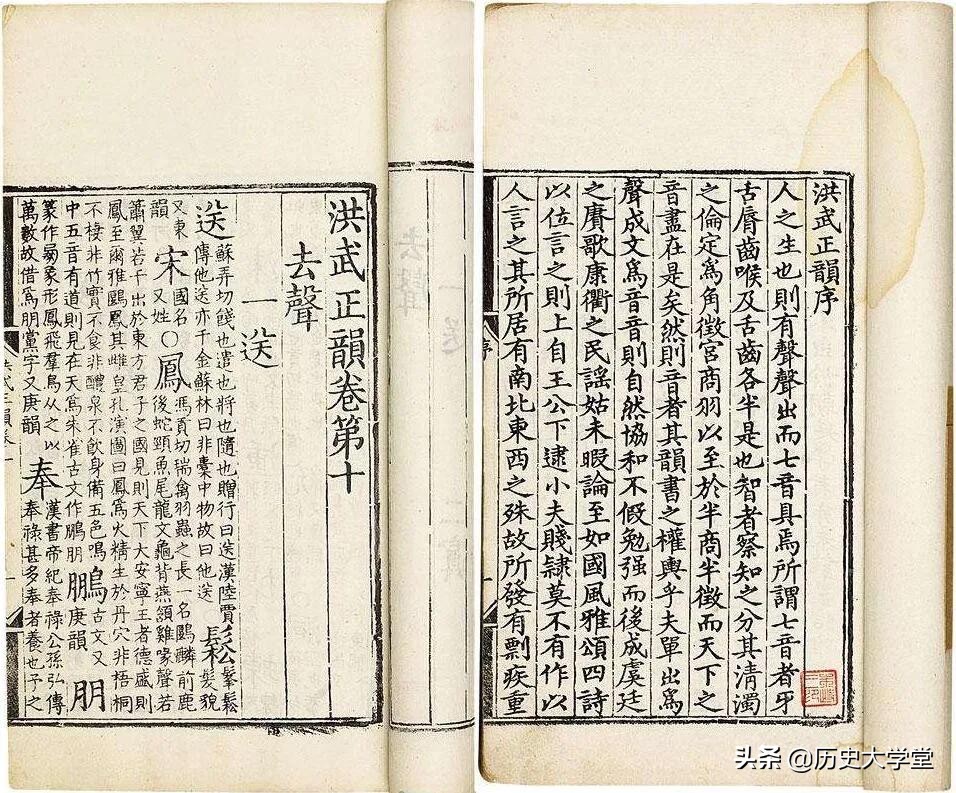 洪武正韻序
人之生也則有聲聲出而七音具焉所謂七音者牙
舌脣齒喉及舌齒各半是也智者察知之分其清濁
之倫定爲角徵宮商羽以至於半商半徵而天下之
音盡在是矣然則音者其韻書之權輿乎夫單出爲
聲成文爲音音則自然協和不假勉强而後成虞廷
之賡歌康衢之民謡姑未暇論至如國風雅頌四詩
以位言之則上自王公下逮小夫賤隷莫不有作以
人言之其所居有南北東西之殊故所發有剽疾重
洪武正韻卷第十
去聲
一送
送蘇弄切餞也遣也將也隨也贈行曰送漢陸賈
傳他送亦千金蘇林曰非囊中物故曰他送鬆鬆髮貌
又東韻宋國名又姓○鳳馮貢切瑞禽羽蟲之長一名鶠麟前鹿
後蛇頸魚尾龍文龜背燕頷雞喙聲若
簫翼若干出於東方君子之國見則天下大安寧王者德盛則
鳳至爾雅鶠鳳其雌皇孔演圖曰鳳爲火精生於丹穴非梧桐
不棲非竹實不食非醴泉不飲身備五色鳴
中五音有道則見在天爲朱雀古文作鵬朋鵬庚韻古文又朋
篆作象形鳳飛羣鳥從之以
萬數故借爲朋黨字又庚韻奉漢書帝紀奉祿公孫弘傳
奉祿甚多奉者養也子之
头条 @历史大学堂